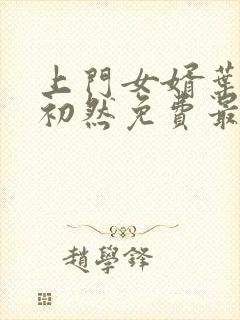 上門女婿葉
初然免費最
趙學鋒